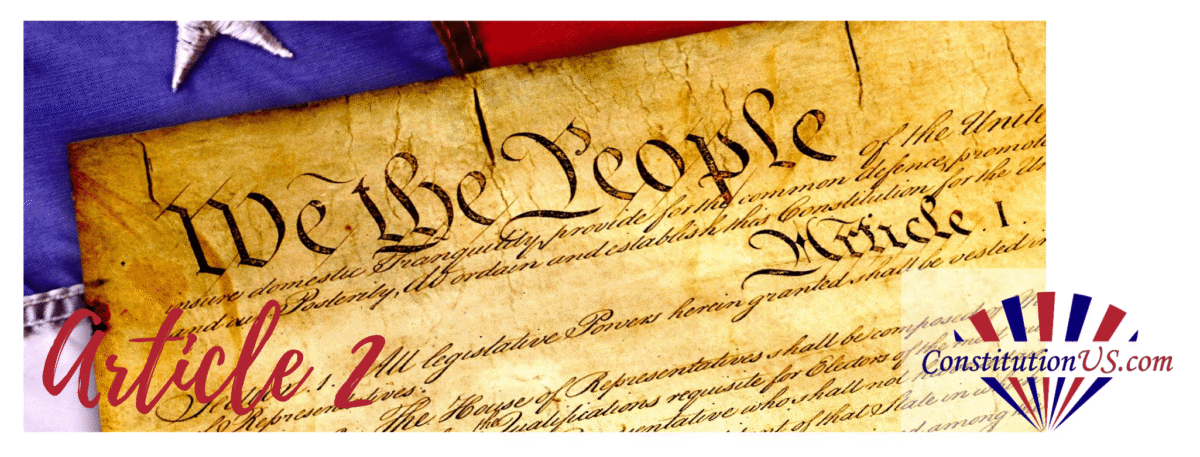 We the People of the Unite
insure domestic Tranquility, provide for the common defence, promote
and our Posterity, do ordain and establish this Constitution for the Un
Article. I.
Section. 1. All legislative Powers herein granted shall be vested in
of Representatives.
The House of Representatives shall be composed of
the Qualifications requisite for Electors of the most
Representative who shall not
of that State in w
among
Article 2
ConstitutionUS.com